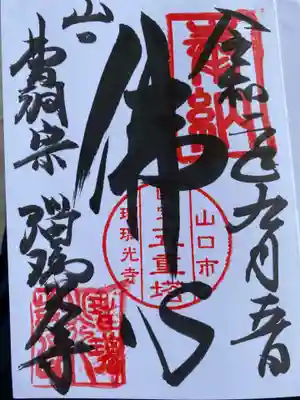 令和 九月 日
奉納
佛心
山口市
国宝
五重塔
瑠璃光寺
山口
曹洞宗 瑠璃光寺